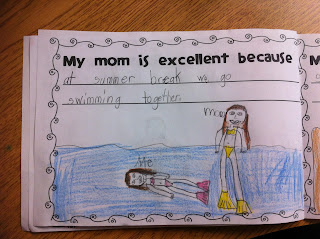 My mom is excellent because
at summer break we go
swimming together.
mom
Me